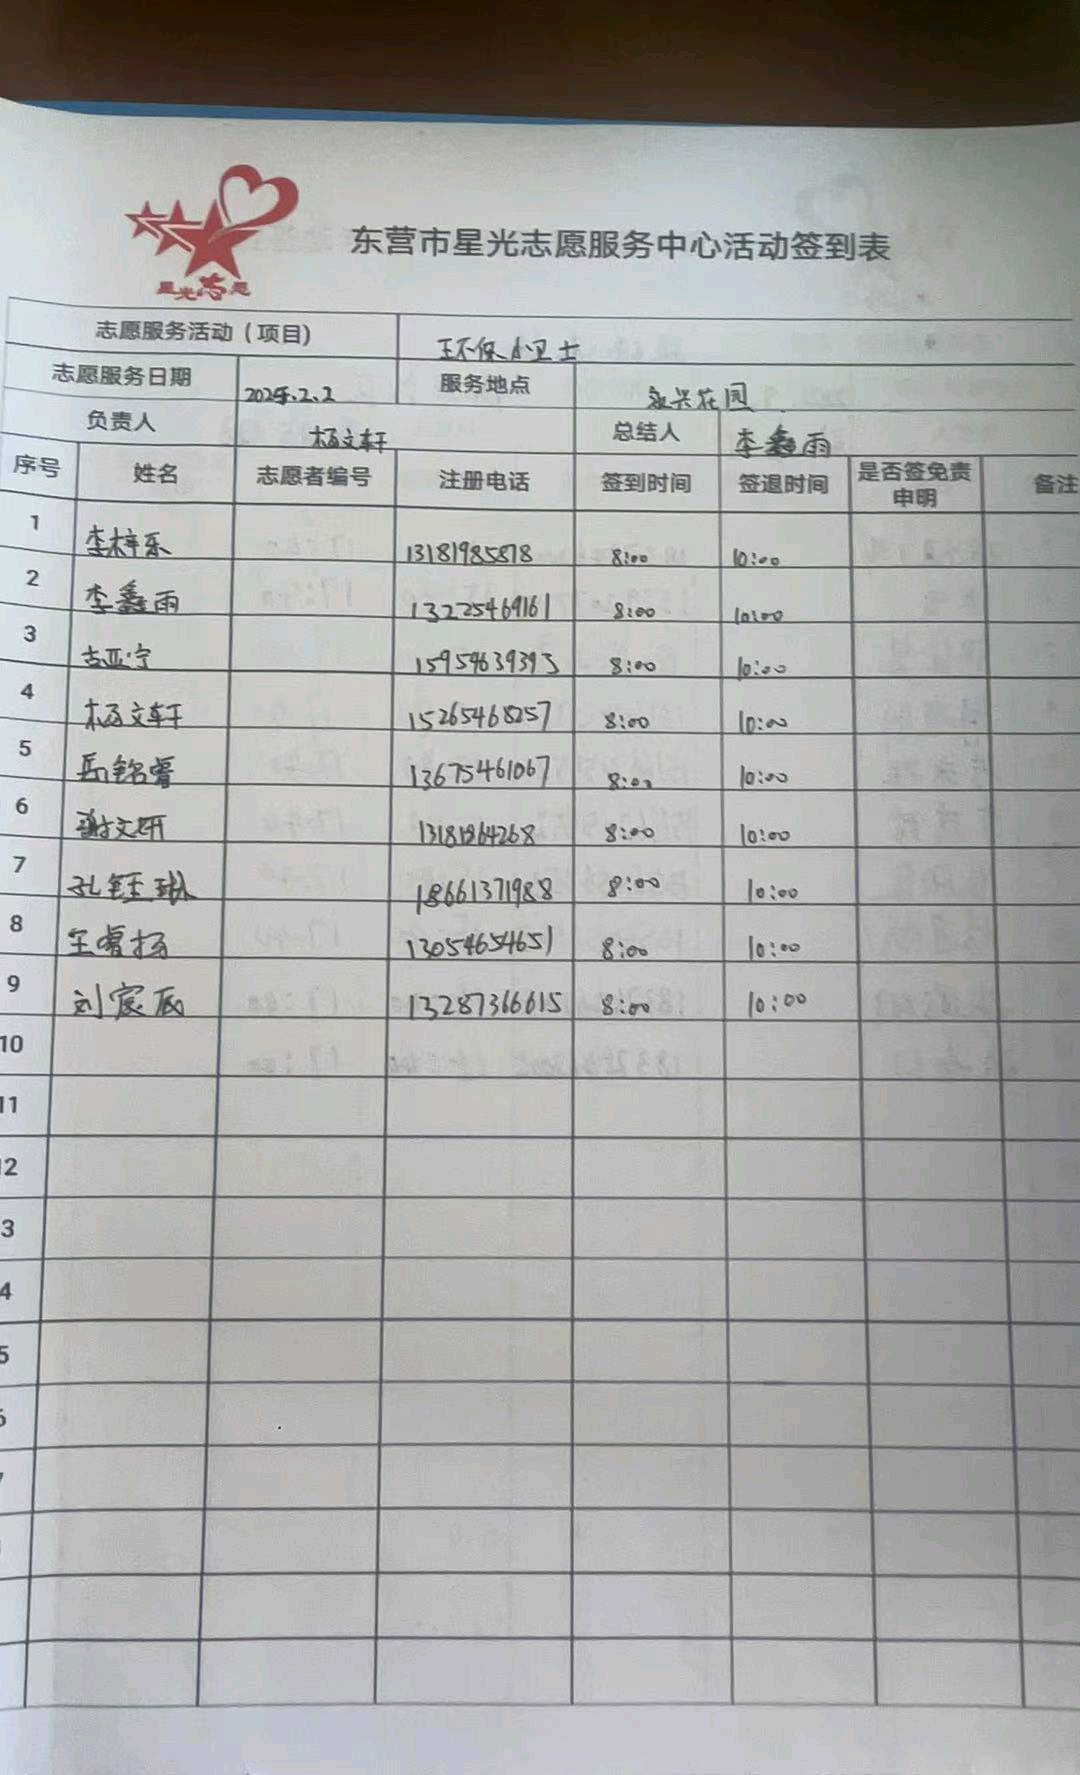 星光志愿
东营市星光志愿服务中心活动签到表
志愿服务活动（项目） 环保小卫士
志愿服务日期 2025.2.2 服务地点 永兴花园
负责人 杨文轩 总结人 李鑫雨
序号 姓名 志愿者编号 注册电话 签到时间 签退时间 是否签免责申明 备注
1 李梓乐 13181985878 8:00 10:00
2 李鑫雨 13225469161 8:00 10:00
3 古亚宁 15954639393 8:00 10:00
4 杨文轩 15265468257 8:00 10:00
5 岳铭睿 13675461067 8:00 10:00
6 谢文妍 8:00 10:00
7 孔钰琳 18661371988 8:00 10:00
8 王睿扬 13054654651 8:00 10:00
9 刘宸辰 13287366615 8:00 10:00
10
11
12
3
4
5